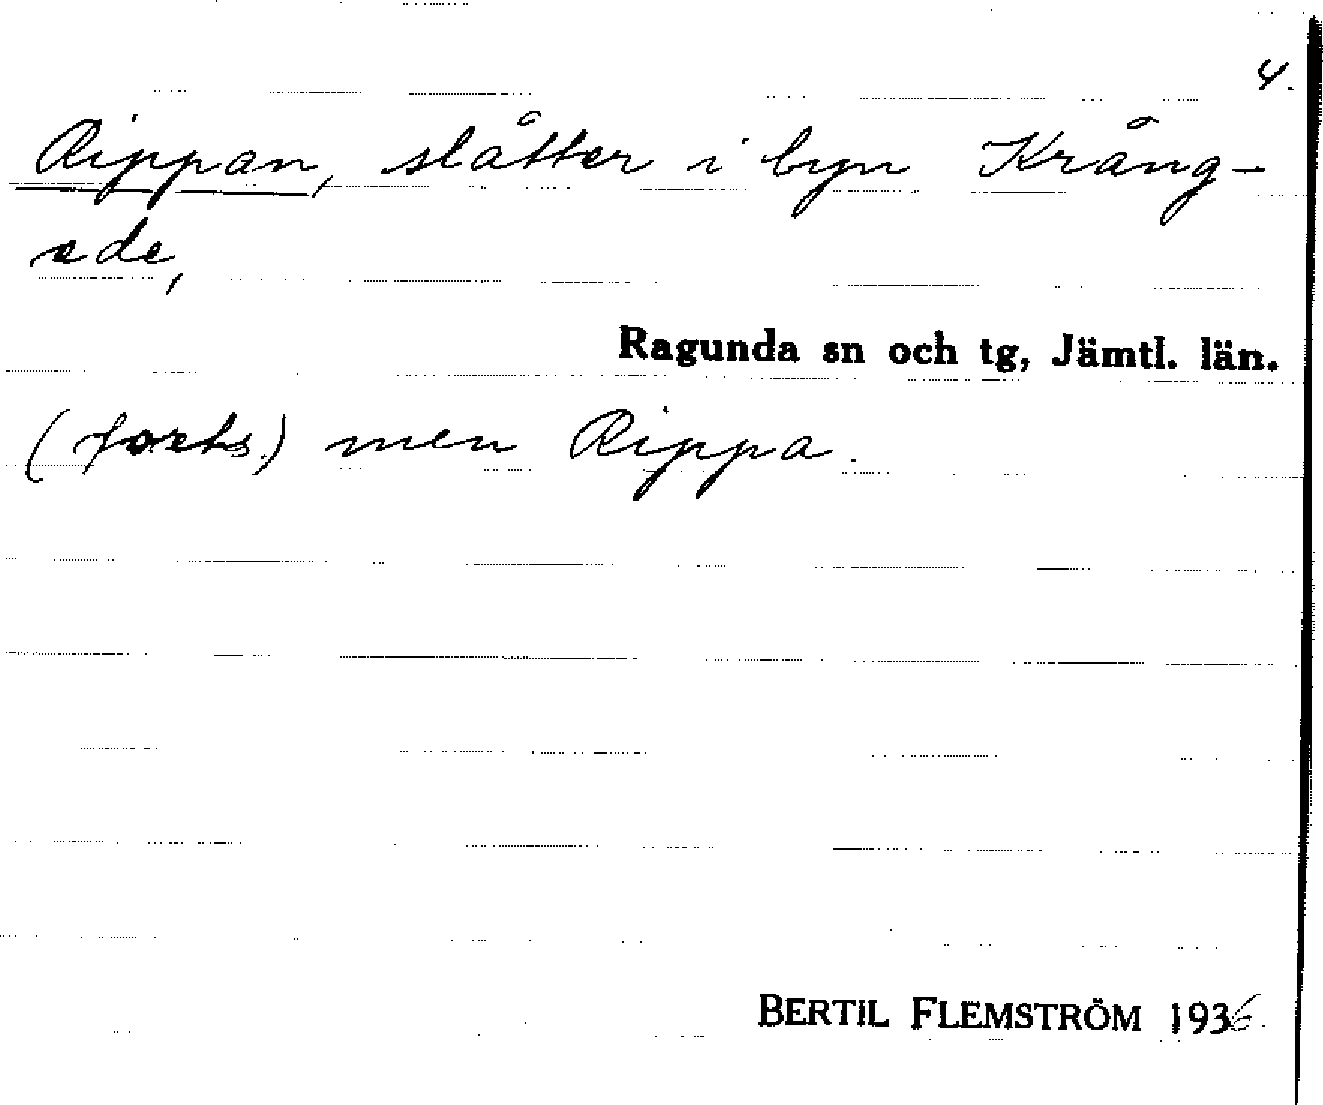 4.
Rippan, slåtter i byn Krång-
ede,
Ragunda sn och tg, Jämtl. län.
(forts.) men Rippa.
BERTIL FLEMSTRÖM 1936.